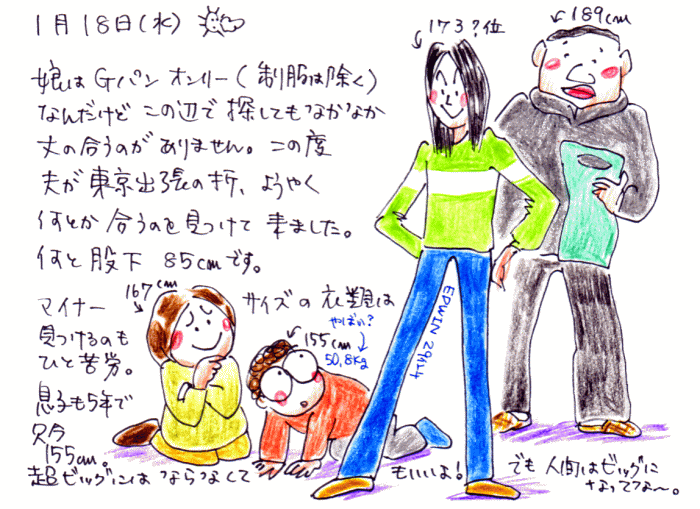 1月18日(水)
173?位
189cm
娘はGパンオンリー(制服は除く)
なんだけど この辺で探してもなかなか
丈の合うのがありません。この度
夫が東京出張の折、ようやく
何とか合うのを見つけて来ました。
何と股下 85cmです。
167cm
マイナーサイズの衣類は
見つけるのも
ひと苦労。
155cm
やばい?
50,8kg
EDWIN 29インチ
息子も5年で
只今
155cm。
超ビッグにはならなくてもいいよ!
でも 人間はビッグに
なってな〜。